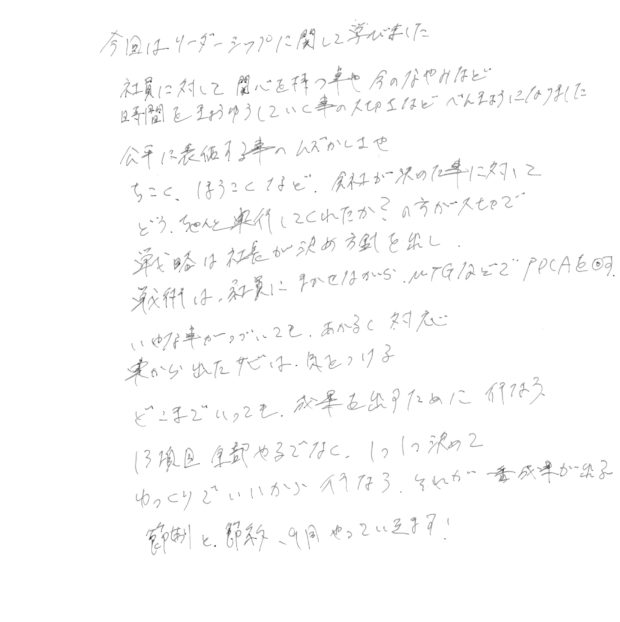 今回はリーダーシップに関して学びました
社員に対して 関心を持つ事や 今のなやみなど
時間をきょうゆうしていく事の大切さなど べんきょうになりました
公平に表価する事の ムズかしさや
ちこく、ほうこくなど、会社が決めた事に対して
どう、ちゃんと実行してくれたか？の方が大切で
戦略は社長が決め方針を出し、
戦術は、社員にまかせながら、MTGなどでPDCAを回す。
いやな事がつづいても、あかるく対応
実から出たサビは、気をつける
どこまでいっても、成果を出すために 行なう、
13項目 全部やるでなく、1つ1つ決めて
ゆっくりでいいから 行なう、それが 成果が出る
節制と、節約、9月やっていきます！